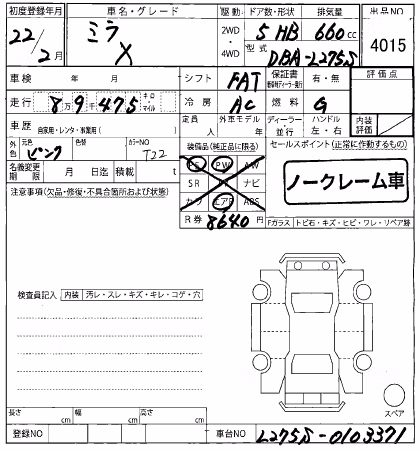 初度登録年月 車名・グレード 駆動 ドア数・形状 排気量 出品NO
22/2月 ミラ X 2WD・4WD 5 HB 660cc 4015
型式 DBA-L275S
車検 年 月 シフト FAT 保証書 有・無 評価点
走行 8万9千475 キロ・マイル 冷房 AC 燃料 G
車歴 自家用・レンタ・事業用( ) 定員 人 外車モデル 年 ディーラー 並行 ハンドル 左・右 内装評価
外色 元色 ピンク 色替 カラーNO T22 装備品(純正品に限る) セールスポイント(正常に作動するもの)
名義変更期限 月 日迄 積載 t PS PW AW
注意事項(欠品・修復・不具合箇所および状態) SR ナビ
カワ エアB ABS
ノークレーム車
R券 8640円
Fガラス トビ石・キズ・ヒビ・ワレ・リペア跡
検査員記入 内装 汚レ・スレ・キズ・キレ・コゲ・穴
スペア
長さ cm 幅 cm 高さ cm
登録NO 車台NO L275S-0103371